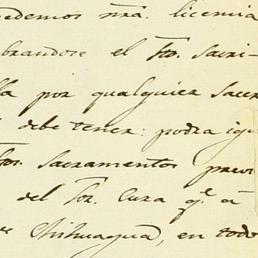 cedemos nrã. licencia
brandose el Sto. Sacri-
lla por qualquier Sacer
debe tener: podra igu
Stos. Sacramentos previ
del Sor. Cura q.e á
de Chihuagua, en todo